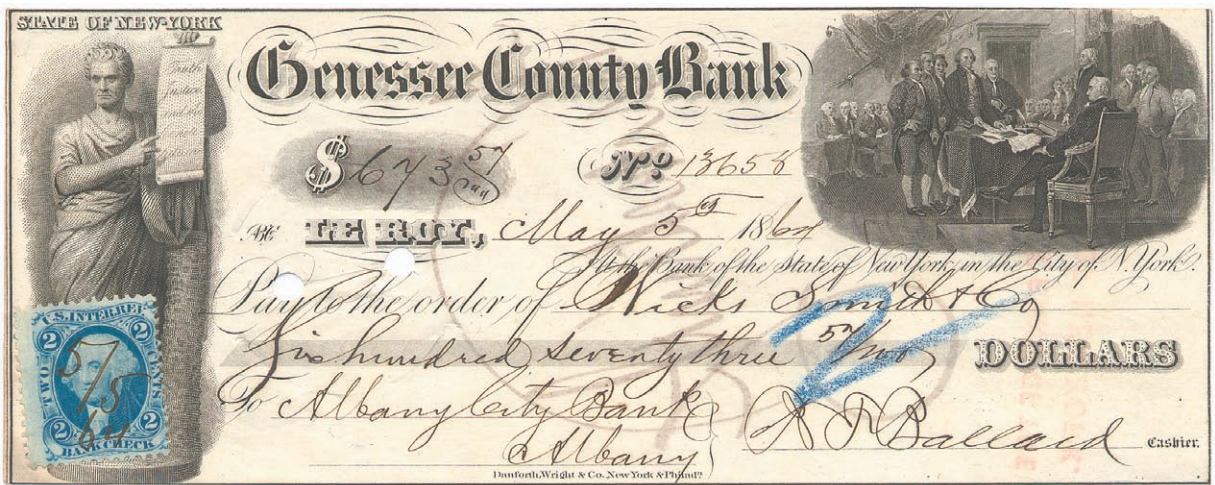 STATE OF NEW-YORK
Genessee County Bank
$ 673 57/100
No 13658
At LE ROY, May 5th 1864
At the Bank of the State of New York, in the City of N. York.
Pay to the order of Wicks Smith & Co
Six hundred seventy three 57/100 DOLLARS
To Albany City Bank
Albany
Cashier.
Danforth, Wright & Co. New York & Philada
U.S. INTER. REV.
2 2
TWO CENTS
5/5
64
2 2
BANK CHECK
Ballard